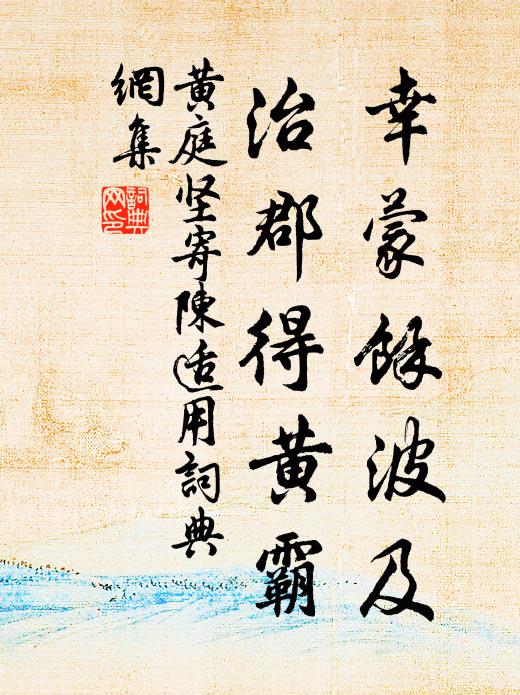 幸蒙餘波及
治郡得黄霸
黄庭坚寄陳适用詞典
網集
詞典
网印